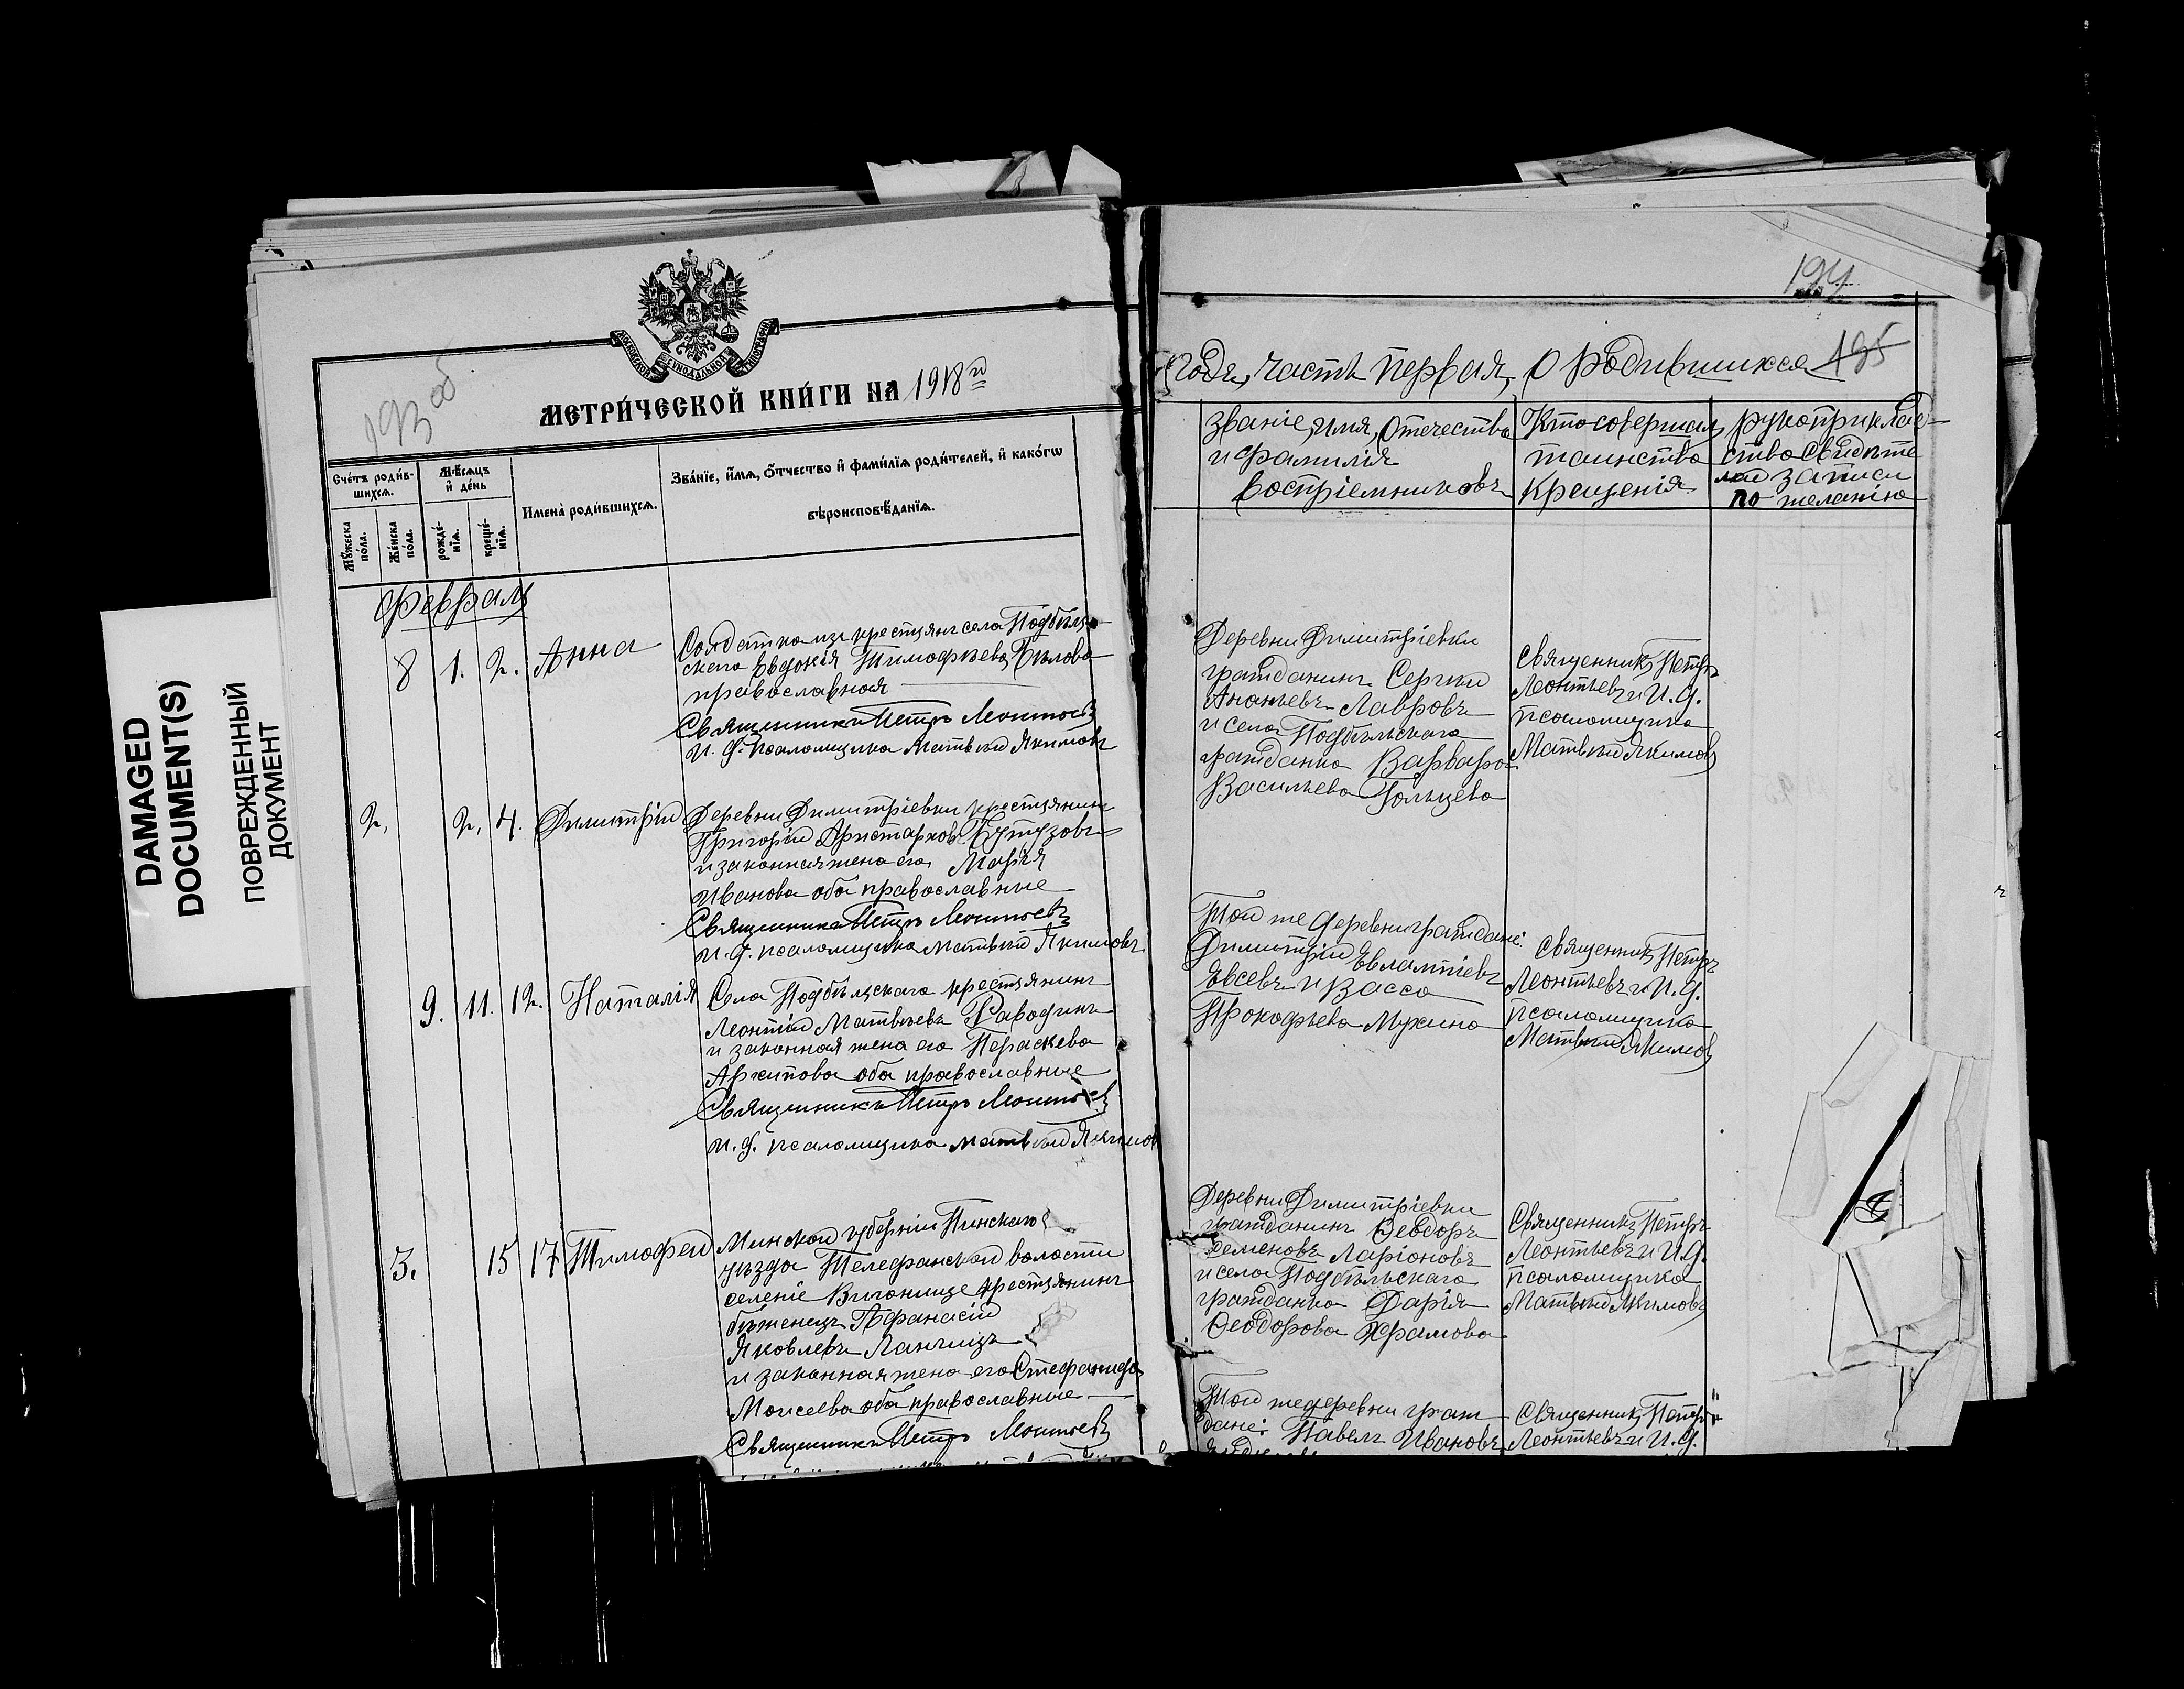 DAMAGED
DOCUMENT(S)
ПОВРЕЖДЕННЫЙ
ДОКУМЕНТ
193 об
МОСКОВСКОЙ СѴНОДАЛЬНОЙ ТИПОГРАФІИ
МЕТРИ́ЧЕСКОЙ КНИ́ГИ НА 1918 г
Сче́тъ роди́в-
шихсѧ.
Мѣ́сѧцъ
и҆ де́нь
Имена̀ роди́вшихсѧ.
Зва́нїе, и҆́мѧ, ѻ҆́тчество и҆ фами́лїѧ роди́телей, и҆ како́гѡ
вѣроисповѣ́данїѧ.
Мꙋ́жеска
по́ла.
Же́нска
по́ла.
рожде́-
нїѧ.
креще́-
нїѧ.
Февраль
8 1. 2. Анна
Солдатка изъ крестьянъ села Подбѣль-
скаго Евдокія Тимофѣева Бѣлова
православная
Священникъ Петръ Леонтьевъ
И. д. псаломщика Матвѣй Якимовъ
2. 2. 4. Димитрій
Деревни Димитріевки крестьянинъ
Григорій Аристарховъ Кутузовъ
и законная жена его Марія
Иванова оба православные
Священникъ Петръ Леонтьевъ
И. д. псаломщика Матвѣй Якимовъ
9. 11. 12. Наталія
Села Подбѣльскаго крестьянинъ
Леонтій Матвѣевъ Раводинъ
и законная жена его Параскева
Архипова оба православные
Священникъ Петръ Леонтьевъ
И. д. псаломщика Матвѣй Якимов
3. 15 17 Тимофей
Минской губерніи Пинскаго
уѣзда Телеханской волости
селеніе Выгонище крестьянинъ
бѣженецъ Афанасій
Яковлевъ Ланчицъ
и законная жена его Стефанида
Моисеева оба православные
Священникъ Петръ Леонтьевъ
194
195
годъ, часть первая, о родившихся
Званіе, имя, отечество
и фамилія
воспріемниковъ
Кто совершалъ
таинство
крещенія
рукоприклад-
ство свидѣте
лей записи
по желанію
Деревни Димитріевки
гражданинъ Сергѣй
Ананьевъ Лавровъ
и села Подбѣльскаго
гражданка Варвара
Васильева Гольцева
Священникъ Петръ
Леонтьевъ и И. д.
псаломщика
Матвѣй Якимовъ
Той же деревни граждане:
Димитрій Евлампіевъ
Евсевъ и Васса
Прокофьева Мухина
Священникъ Петръ
Леонтьевъ и И. д.
псаломщика
Матвѣй Якимовъ
Деревни Димитріевки
гражданинъ Ѳеодоръ
Семеновъ Ларіоновъ
и села Подбѣльскаго
гражданка Дарія
Ѳеодорова Храмова
Священникъ Петръ
Леонтьевъ и И. д.
псаломщика
Матвѣй Якимовъ
Той же деревни граж
дане: Павелъ Ивановъ
Священникъ Петръ
Леонтьевъ и И. д.